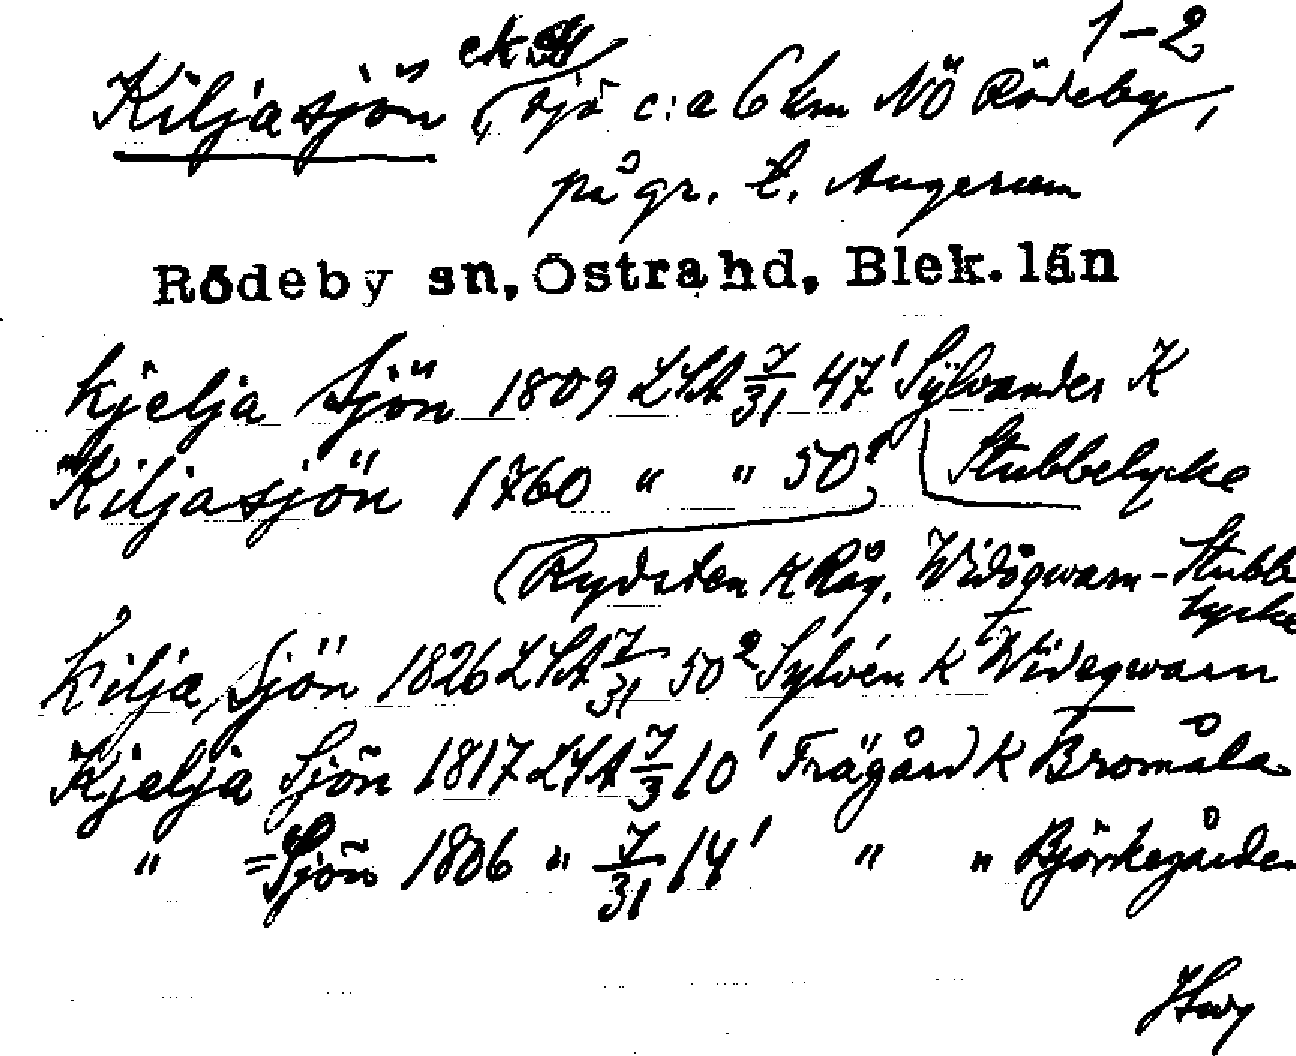 1-2
Kiljasjön ek. sjö c:a 6 km NÖ Rödeby,
på gr. t. Augerum
Rödeby sn, Östra hd, Blek. län
Kjelja Sjön 1809 LSA 7/31 47' Sylvander K
Stubbelycke
Kiljasjön 1760 " " 50'
Rydsten K Råg. Widegwarn-Stubbelycke
Kilja Sjön 1826 LSA 7/31 50² Sylvén K Widegwarn
Kjelja Sjön 1817 LSA 7/3 10' Frägård K Bromåla
" =Sjön 1806 " 7/31 14' " " Björkegården